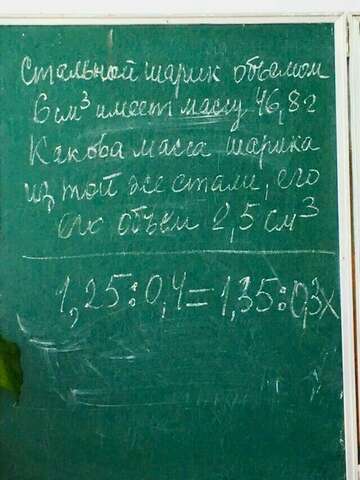 Стальной шарик объемом
6 см³ имеет массу 46,8 г
Какова масса шарика
из той же стали, его
объем 2,5 см³
1,25:0,4=1,35:0,3x